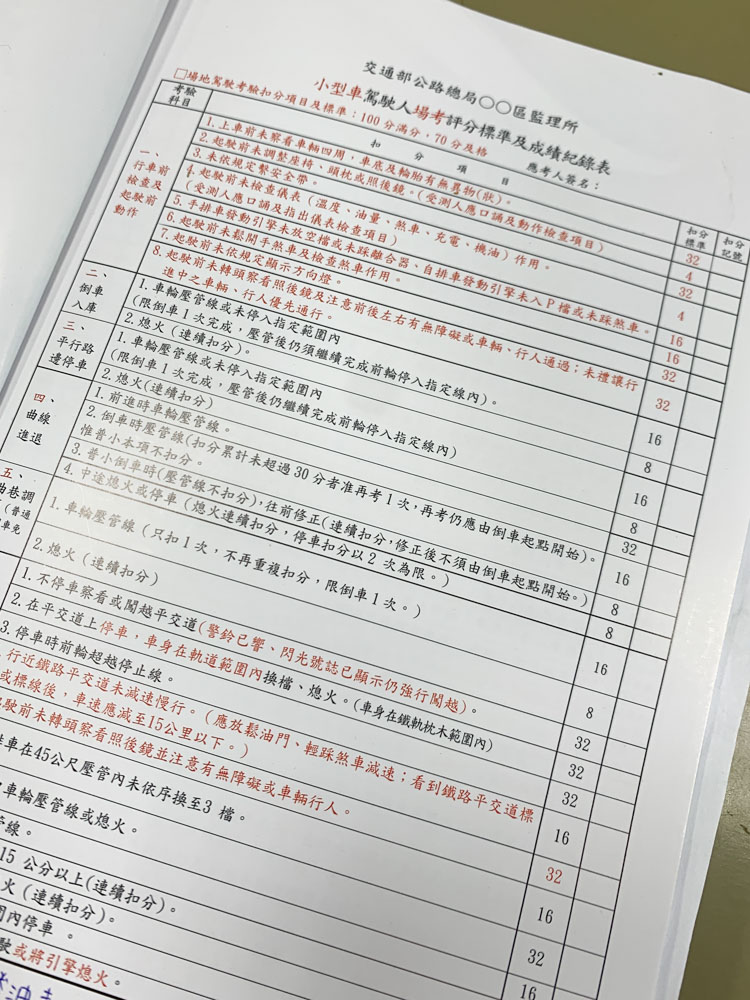 交通部公路總局○○區監理所
小型車駕駛人場考評分標準及成績紀錄表
□場地駕駛考驗扣分項目及標準：100分滿分，70分及格
應考人簽名：
考驗科目 扣分項目 扣分標準 扣分記號
一、行車前檢查及起駛前動作
1. 上車前未察看車輛四周，車底及輪胎有無異物(狀)。 32
2. 起駛前未調整座椅、頭枕或照後鏡。(受測人應口誦及動作檢查項目) 4
3. 未依規定繫安全帶。 32
4. 起駛前未檢查儀表（溫度、油量、煞車、充電、機油）作用。 4
(受測人應口誦及指出儀表檢查項目)
5. 手排車發動引擎未放空檔或未踩離合器、自排車發動引擎未入P檔或未踩煞車。 16
6. 起駛前未鬆開手煞車及檢查煞車作用。 16
7. 起駛前未依規定顯示方向燈。 32
8. 起駛前未轉頭察看照後鏡及注意前後左右有無障礙或車輛、行人通過；未禮讓行 32
進中之車輛、行人優先通行。
二、倒車入庫
1. 車輪壓管線或未停入指定範圍內 16
(限倒車1次完成，壓管後仍須繼續完成前輪停入指定線內)。
2. 熄火（連續扣分）。 8
三、平行路邊停車
1. 車輪壓管線或未停入指定範圍內 16
(限倒車1次完成，壓管後仍繼續完成前輪停入指定線內)
2. 熄火(連續扣分) 8
四、曲線進退
1. 前進時車輪壓管線。 32
2. 倒車時壓管線(扣分累計未超過30分者准再考1次，再考仍應由倒車起點開始)。 16
惟普小本項不扣分。
3. 普小倒車時(壓管線不扣分)，往前修正(連續扣分，修正後不須由倒車起點開始。) 8
4. 中途熄火或停車（熄火連續扣分，停車扣分以2次為限。） 8
五、
曲巷調
（普通
車免
1. 車輪壓管線（只扣1次，不再重複扣分，限倒車1次。） 16
2. 熄火（連續扣分） 8
1. 不停車察看或闖越平交道(警鈴已響、閃光號誌已顯示仍強行闖越)。 32
2. 在平交道上停車，車身在軌道範圍內換檔、熄火。(車身在鐵軌枕木範圍內) 32
3. 停車時前輪超越停止線。 32
行近鐵路平交道未減速慢行。（應放鬆油門、輕踩煞車減速；看到鐵路平交道標 16
或標線後，車速應減至15公里以下。）
起駛前未轉頭察看照後鏡並注意有無障礙或車輛行人。 32
排車在45公尺壓管內未依序換至3檔。 16
車輪壓管線或熄火。 32
管線。 16
15公分以上(連續扣分)。
火（連續扣分）。
圍內停車。
駛或將引擎熄火。